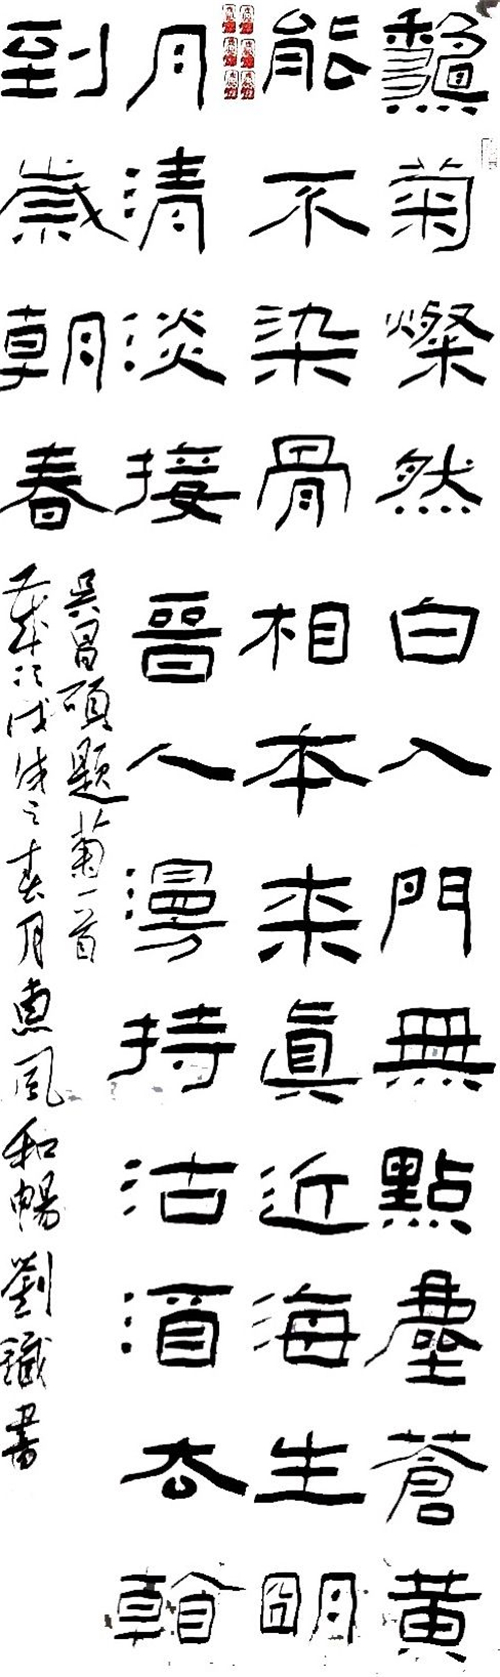 龝菊燦然白入門無點塵蒼黃
能不染骨相本來眞近海生明
月清淡接晉人漫持沽酒去輸
到歲朝春
吳昌碩題菊一首
歲次戊戌之春月惠風和暢劉鐵書